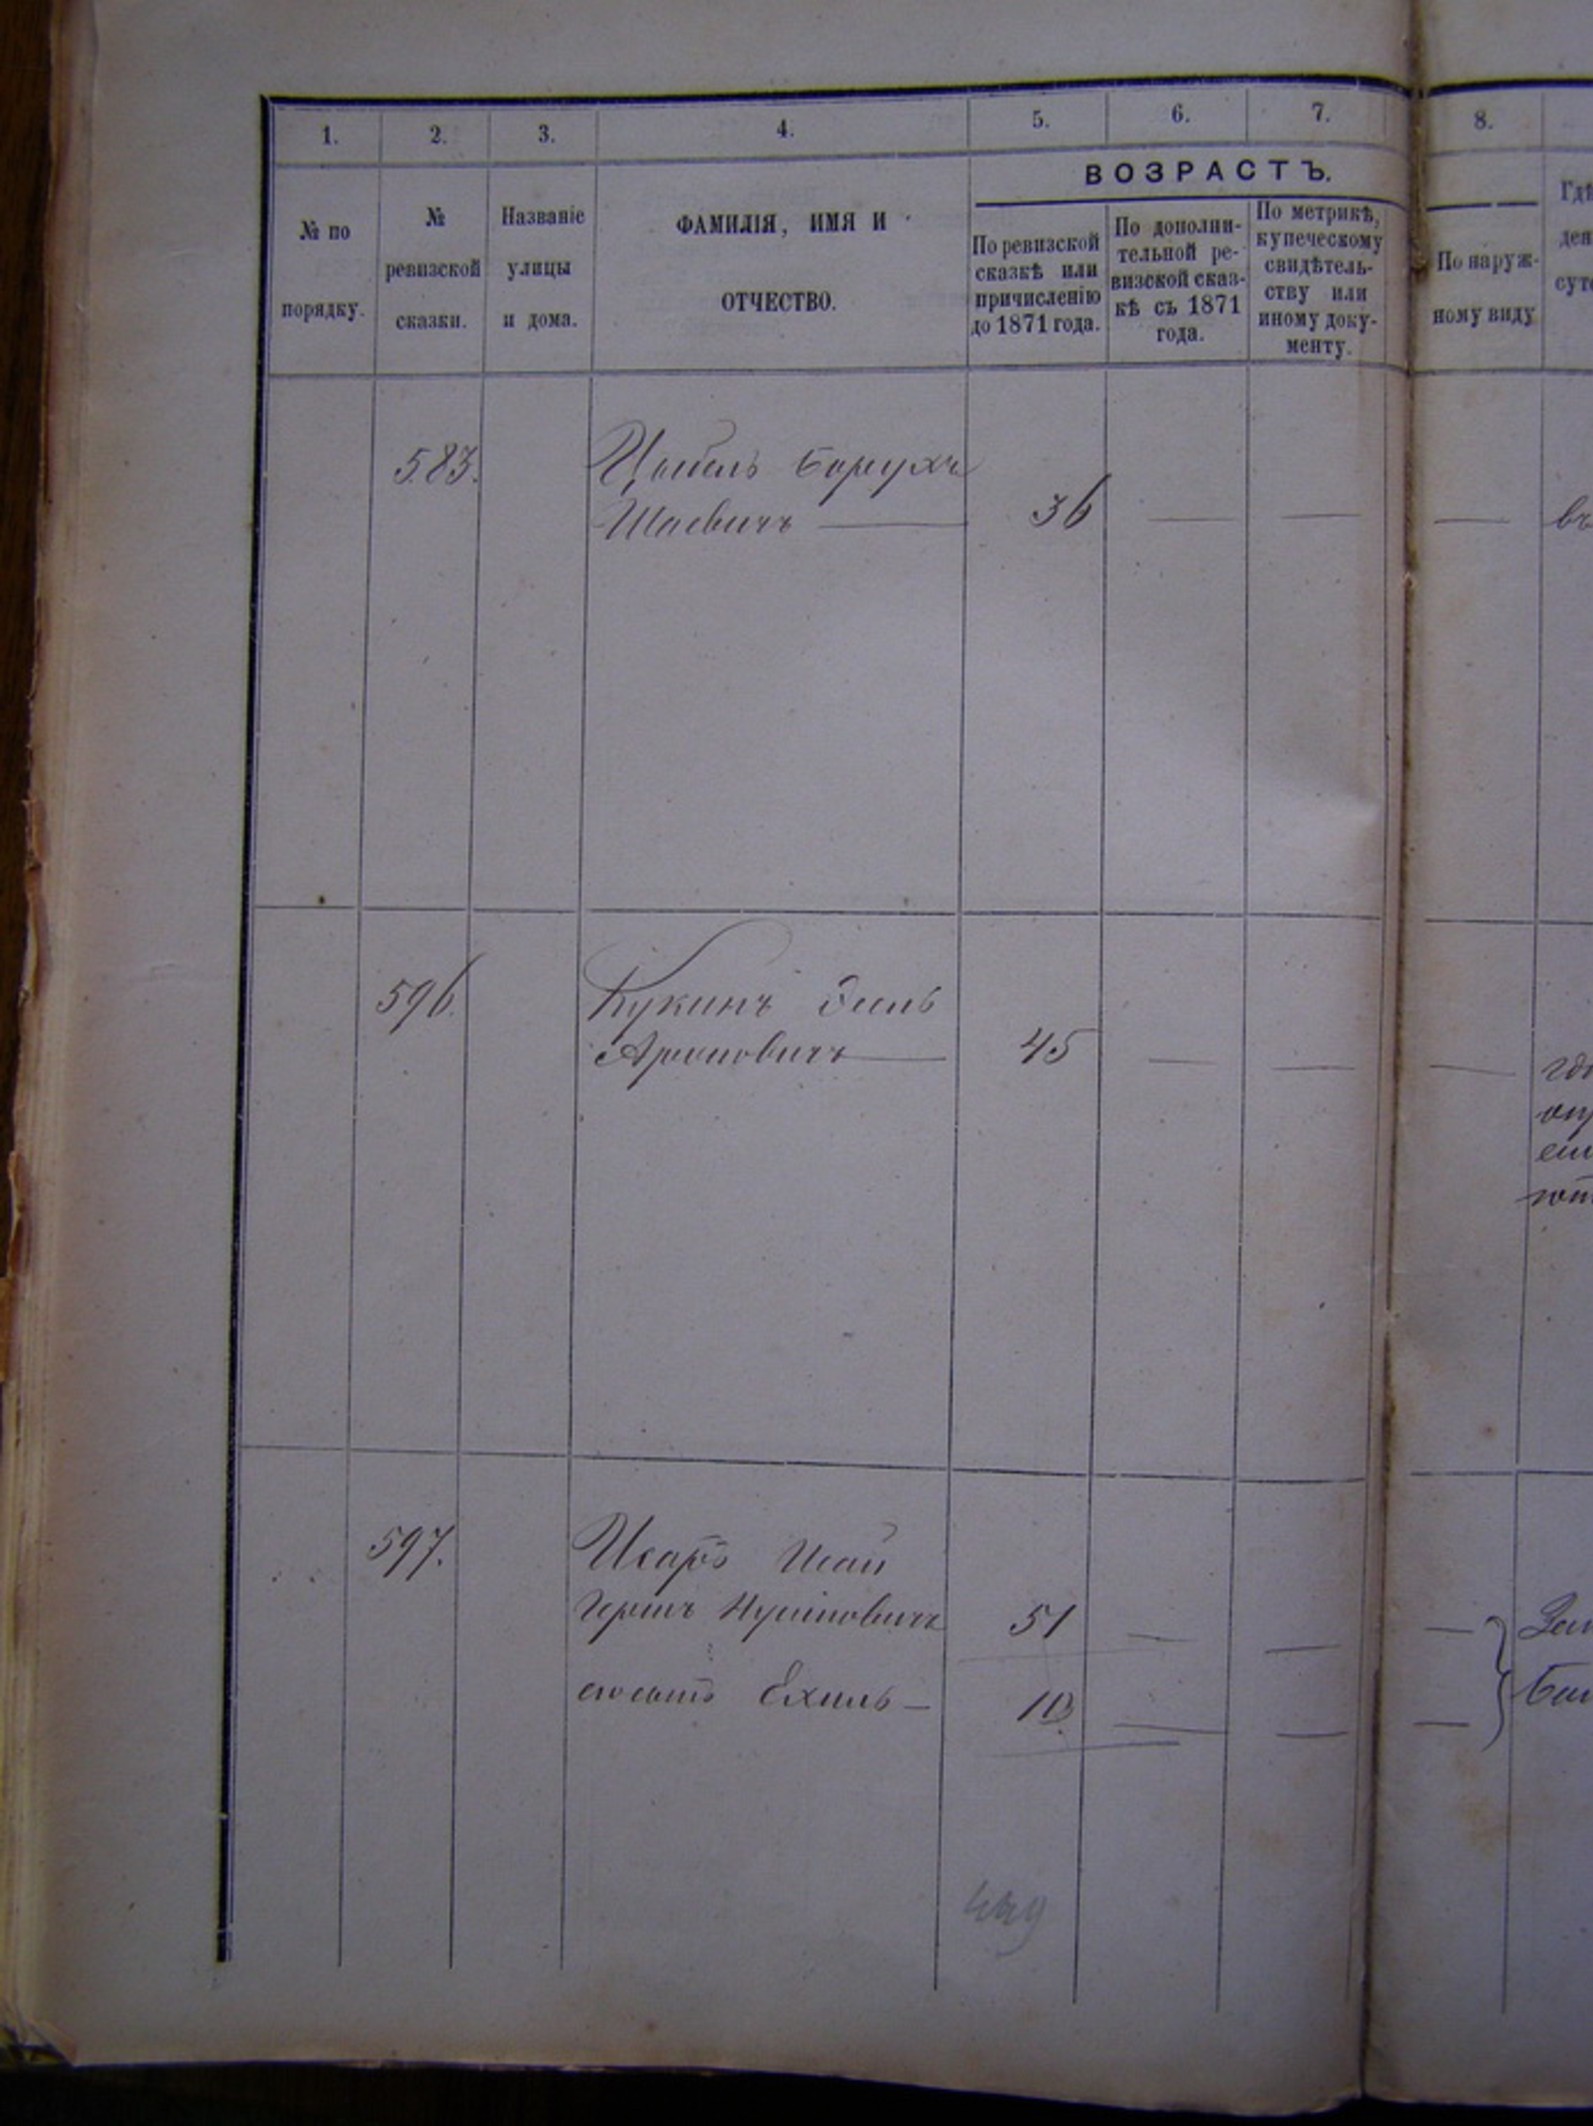 1. 2. 3. 4. 5. 6. 7. 8.
ВОЗРАСТЪ.
№ по
порядку.
№
ревизской
сказки.
Названіе
улицы
и дома.
ФАМИЛІЯ, ИМЯ И
ОТЧЕСТВО.
По ревизской
сказкѣ или
причисленію
до 1871 года.
По дополни-
тельной ре-
визской сказ-
кѣ съ 1871
года.
По метрикѣ,
купеческому
свидѣтель-
ству или
иному доку-
менту.
По наруж-
ному виду
Гдѣ
ден
сут
583. Борухъ
Шаевичъ — 36 — — — въ
596. Кукинъ
Ароновичъ — 45 — — —
597. Исай
Гершъ 51 — — —
Ехиль — 10 — — —